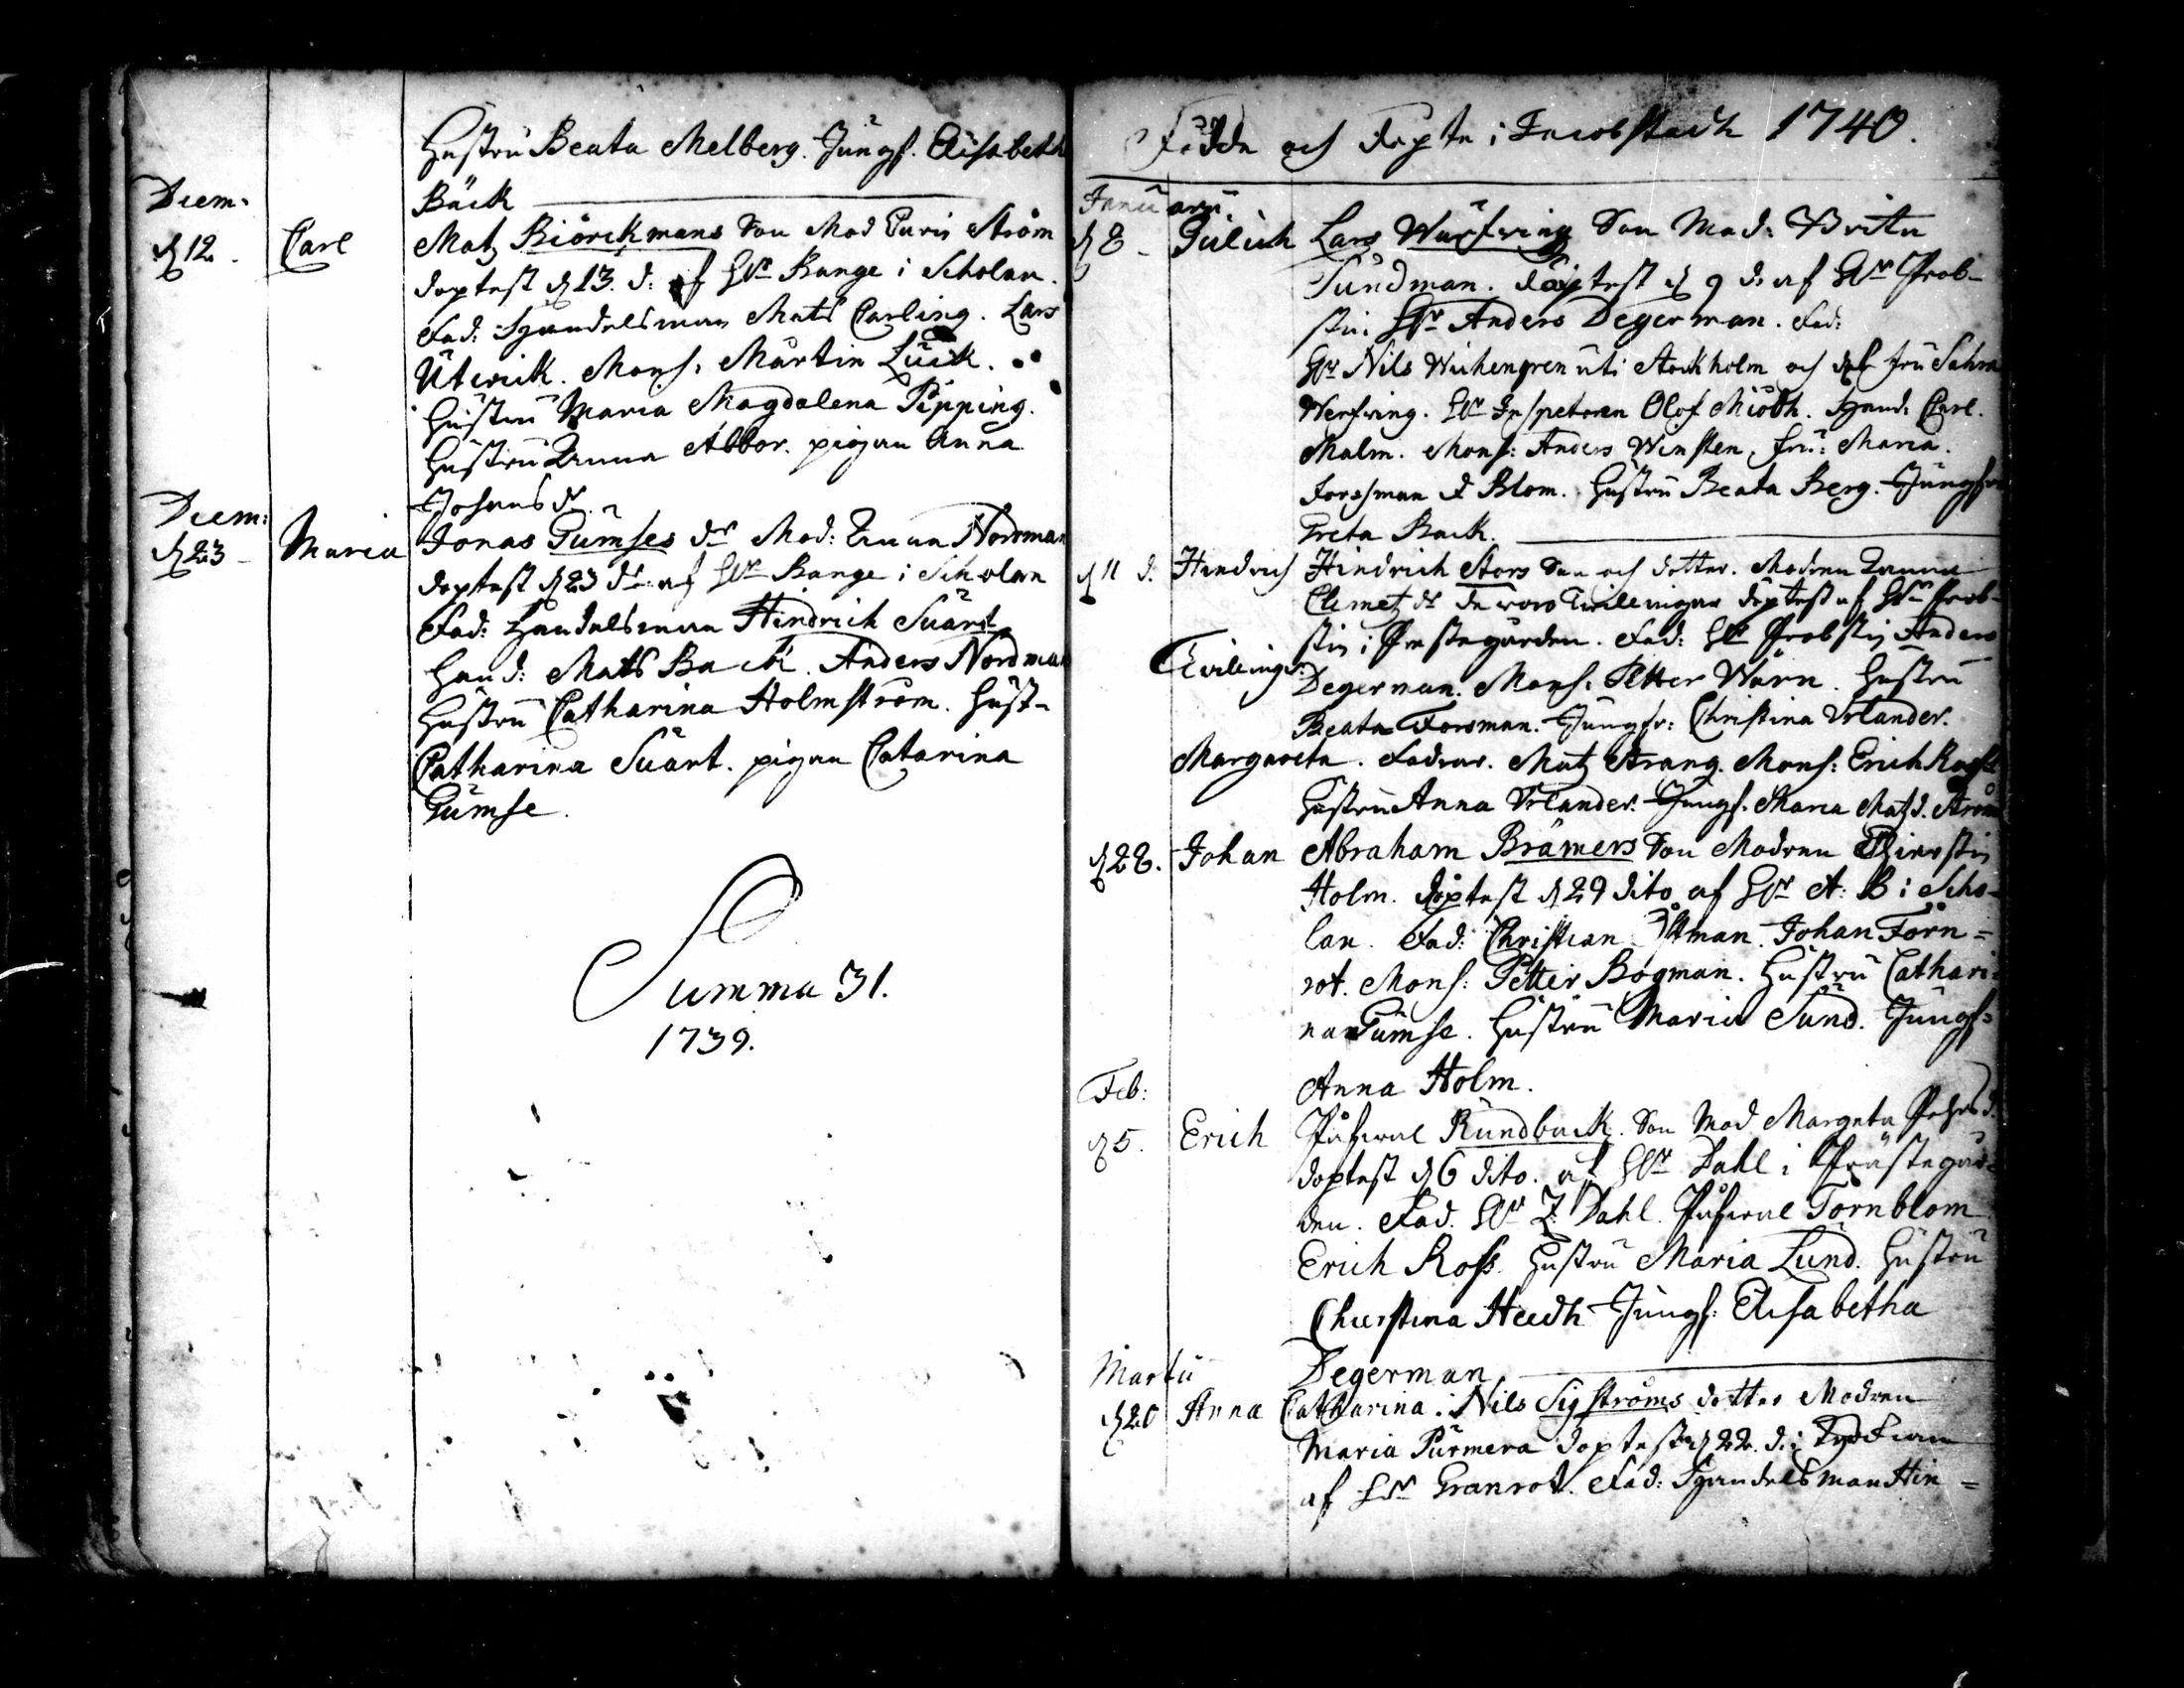 Hustru Beata Melberg. Jungf. Elisabeth
Bäck
Decem.
d 12. Carl Matz Biörckmans Son Mod Carin Ström
döptest d 13. d: af Hr Bange i Scholan.
Fad: Handelsman Mats Carling. Lars
Uterick. Mons. Martin Luck.
Hustru Maria Magdalena Pipping.
Hustru Anna Abbor. pigan Anna
Johans dr.
Decem:
d 23 Maria Jonas Gumses dr Mod: Anna Nordman
doptest d 23 dr af Hr Bange i Scholan
Fad: Handelsman Hindrich Suart
Hand: Mats Back. Anders Nordman
Hustru Catharina Holmstrom. Hust-
Catharina Suart. pigan Catarina
Gumse.
Summa 31.
1739.
Födde och Döpte i Jacobstadh 1740.
Januarii
d 8 - Lars Son Mod: Brita
Sundman. döptest d 9 d: af Hr Prob-
stin Hr Anders Degerman. Fad:
Hr Nils Wichengren uti Stockholm och fru
Werfving. Hr Inspetoren Olof Miödh. Hand: Carl.
Malm. Mons: Anders Winsten, fru: Maria.
Forssman Blom. Hustru Beata Berg. Jungfr
Greta Back.
d 11 d. Hindrich Hindrich Stors Son och dotter. Modren Anna
Clemetz dr de woro Twillingar döptest af Hr Prob-
stin i Prestegården. Fad: Hr Probstin Anders
Tvillingar Degerman. Mons. Petter Wärn. Hustru
Beata Forsman. Jungfr: Christina Urlander.
Margareta. Fadrar. Matz Strang. Mons: Erich Ross
Hustru Anna Urlander. Jungf. Maria Matzd. Ström
d 28. Johan Abraham Brämers Son Modren Kierstin
Holm. döptest d 29 dito af Hr A: B i Scho-
lan. Fad: Christian Östman. Johan Törn=
rot. Mons: Petter Bogman. Hustru Cathari-
na Gumse. Hustru Maria Sund. Jungf=
Anna Holm.
Feb:
d 5. Erich Påhwal Rundback. Son Mod Margeta Pehrsd.
döptest d 6 dito. af Hr Dahl i Prästegår-
den. Fad. Hr Z Dahl. Påhwal Törnblom
Erich Ross. Hustru Maria Lund. Hustru
Chirstina Heedh Jungf: Elisabetha
Degerman
Martii
d 20 Anna Catharina. Nils Sigströms dotter Modren
Maria Purmera döptest d 22. d: i
af Hr Granrot. Fad: Handelsman Hin=